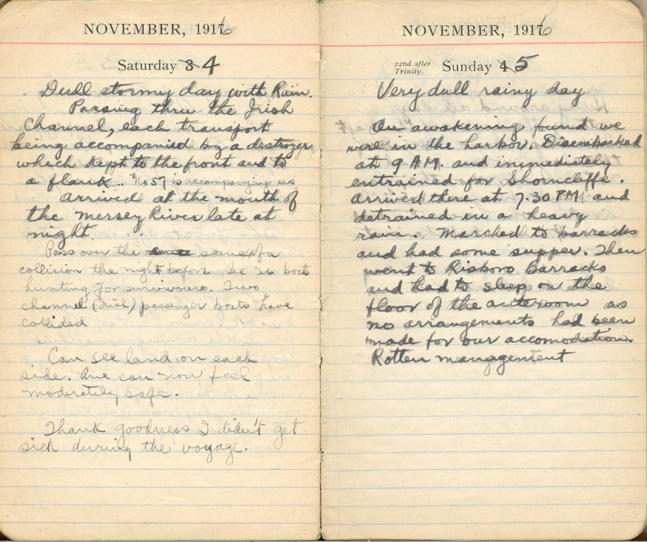 NOVEMBER, 1916
Saturday 4
Dull stormy day with Rain.
Passing thru the Irish
Channel, each transport
being accompanied by a destroyer
which kept to the front and to
a flank.. "No 57 is accompanying us
arrived at the mouth of
the Mersey River late at
night.
Pass over the scene of a
collision the night before. See 26 boats
hunting for survivours. Two
channel (Irish) passenger boats have
collided
Can see land on each
side. One can now feel
moderately safe.
Thank goodness I didn't get
sick during the voyage.
NOVEMBER, 1916
22nd after
Trinity.
Sunday 5
Very dull rainy day
On awakening found we
were in the harbor. Disembarked
at 9 A.M. and immediately
entrained for Shorncliffe.
Arrived there at 7.30 PM and
detrained in a heavy
rain. Marched to barracks
and had some supper. Then
went to Risboro Barracks
and had to sleep on the
floor of the anteroom as
no arrangements had been
made for our accomodation
Rotten management